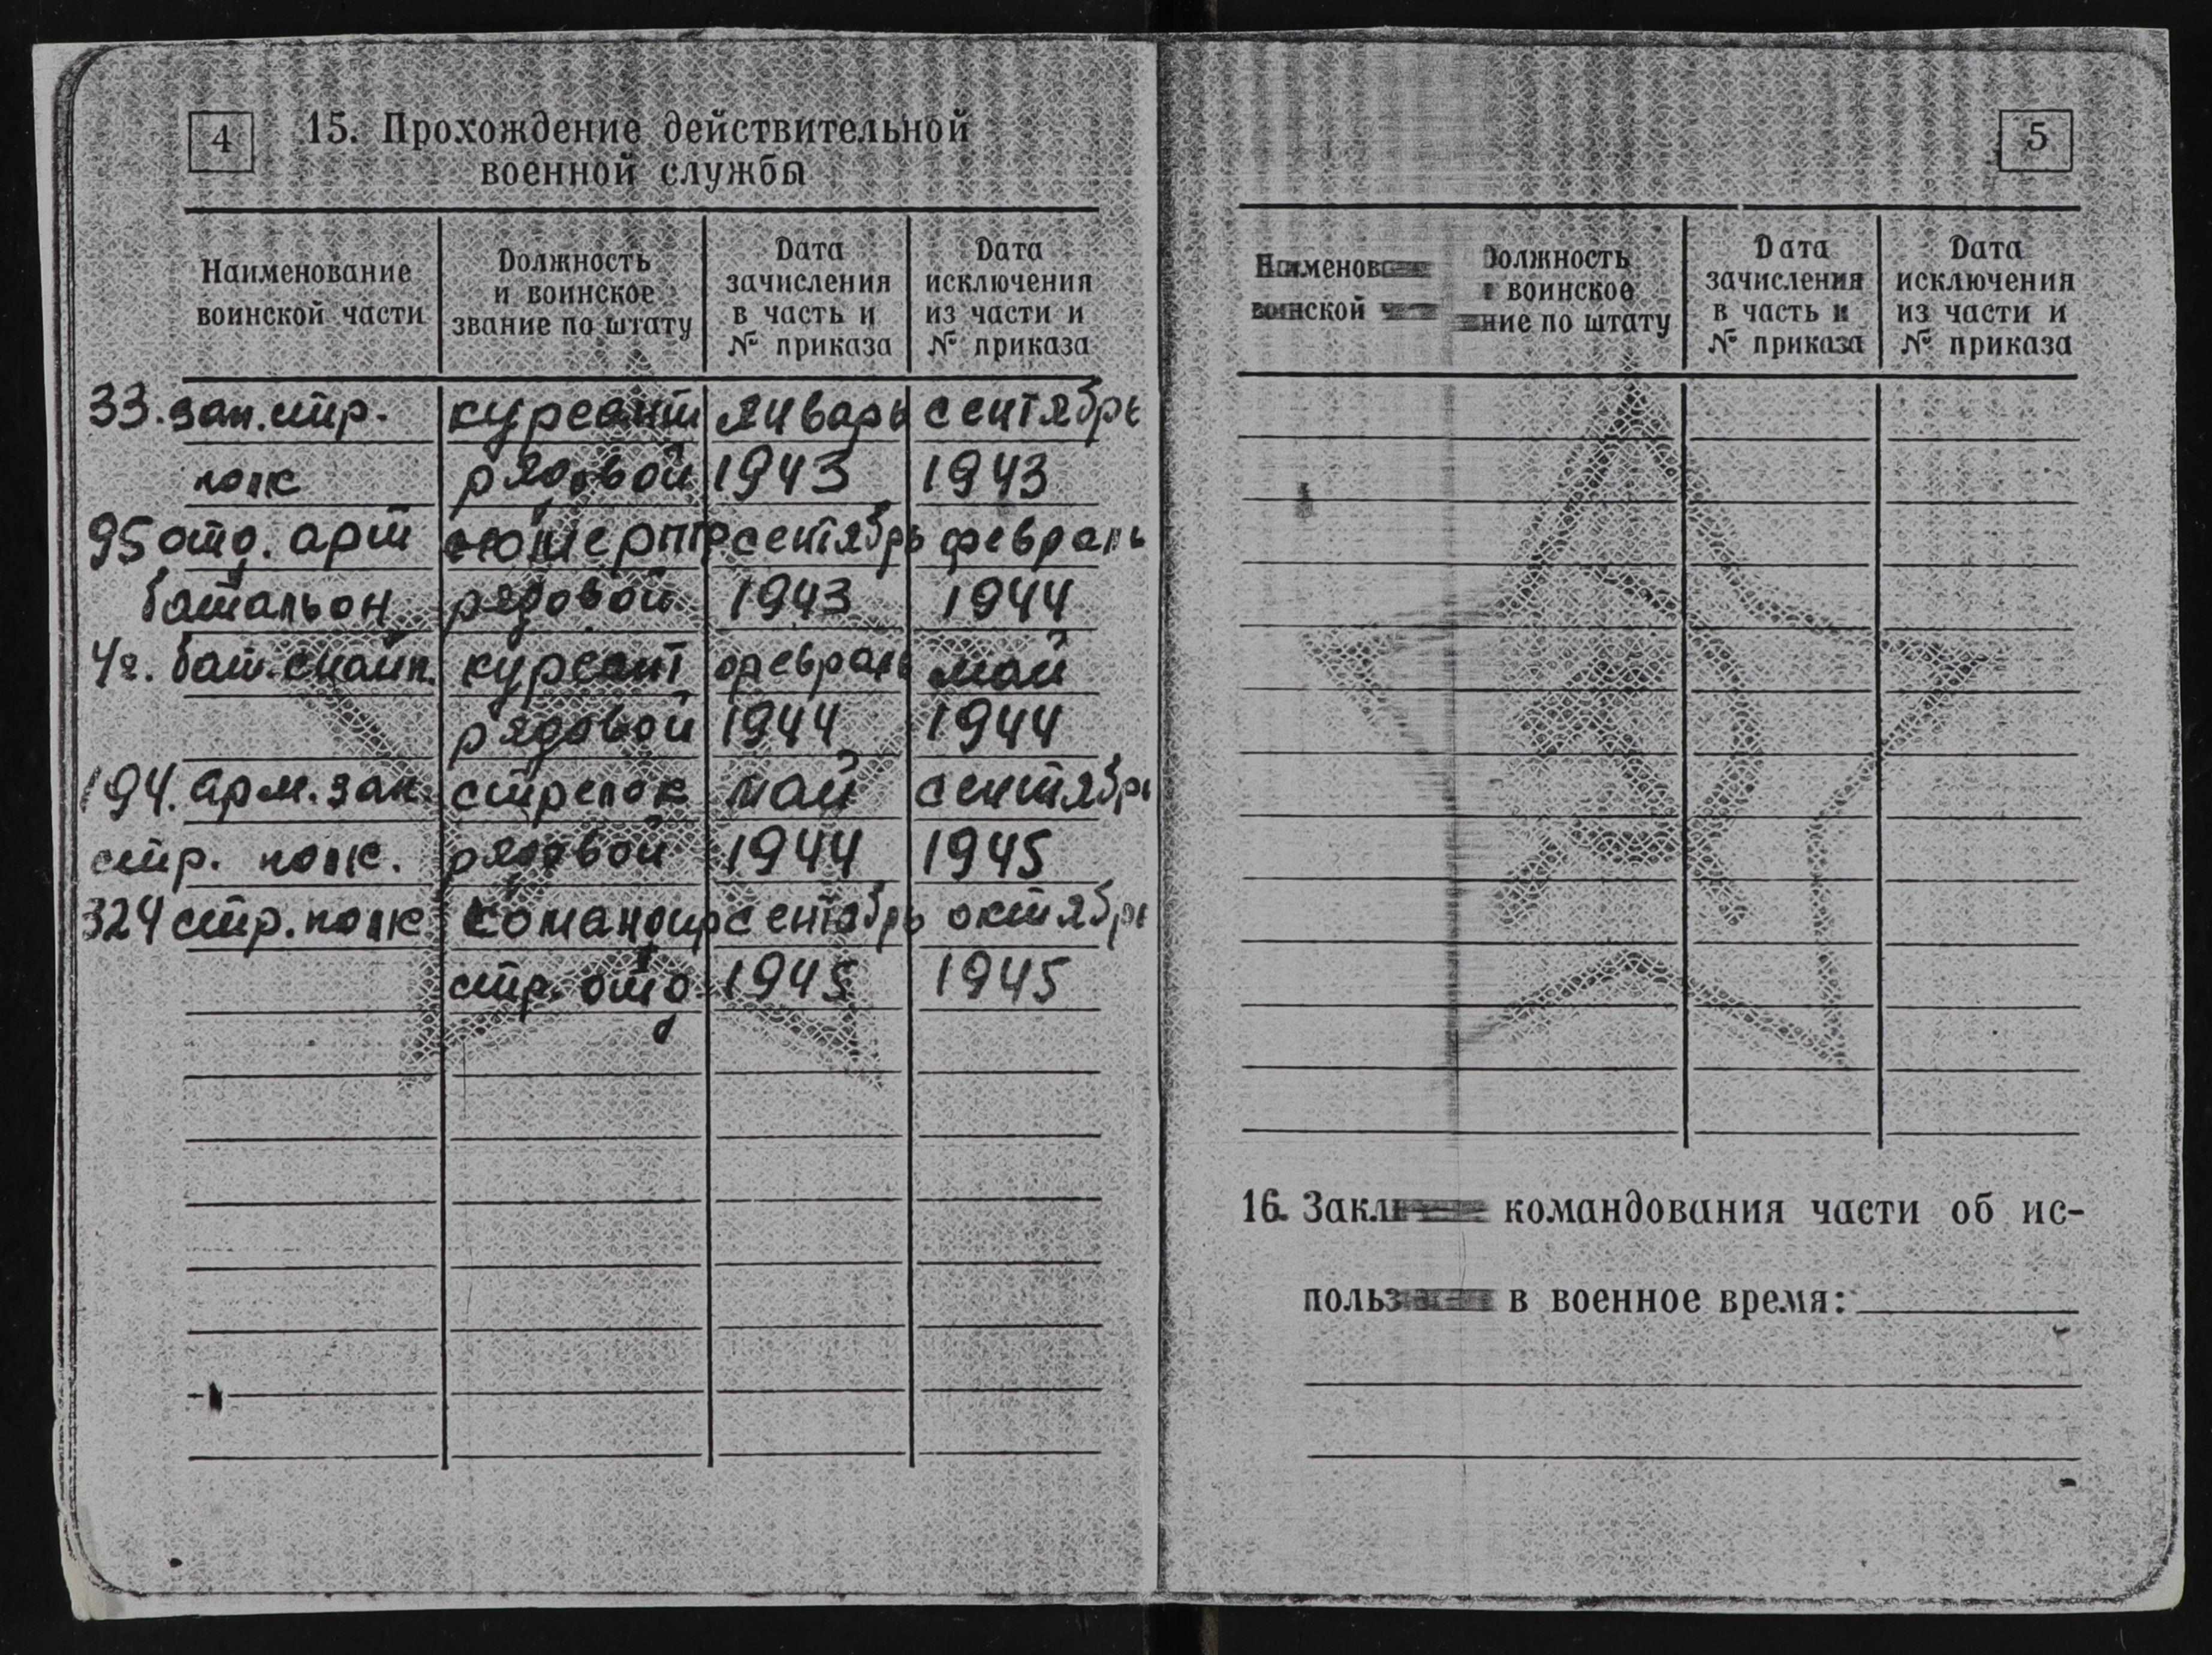 4
15. Прохождение действительной
военной службы
Наименование
воинской части
Должность
и воинское
звание по штату
Дата
зачисления
в часть и
№ приказа
Дата
исключения
из части и
№ приказа
33. зап. стр. курсант январь сентябрь
полк рядовой 1943 1943
95 отд. арт сентябрь февраль
батальон рядовой 1943 1944
бат. снайп. курсант февраль май
рядовой 1944 1944
194. арм. зап. стрелок май сентябрь
стр. полк. рядовой 1944 1945
324 стр. полк командир сентябрь октябрь
стр. отд 1945 1945
5
воинской
Должность
и воинское
по штату
Дата
зачисления
в часть и
№ приказа
Дата
исключения
из части и
№ приказа
16. командования части об ис-
в военное время: